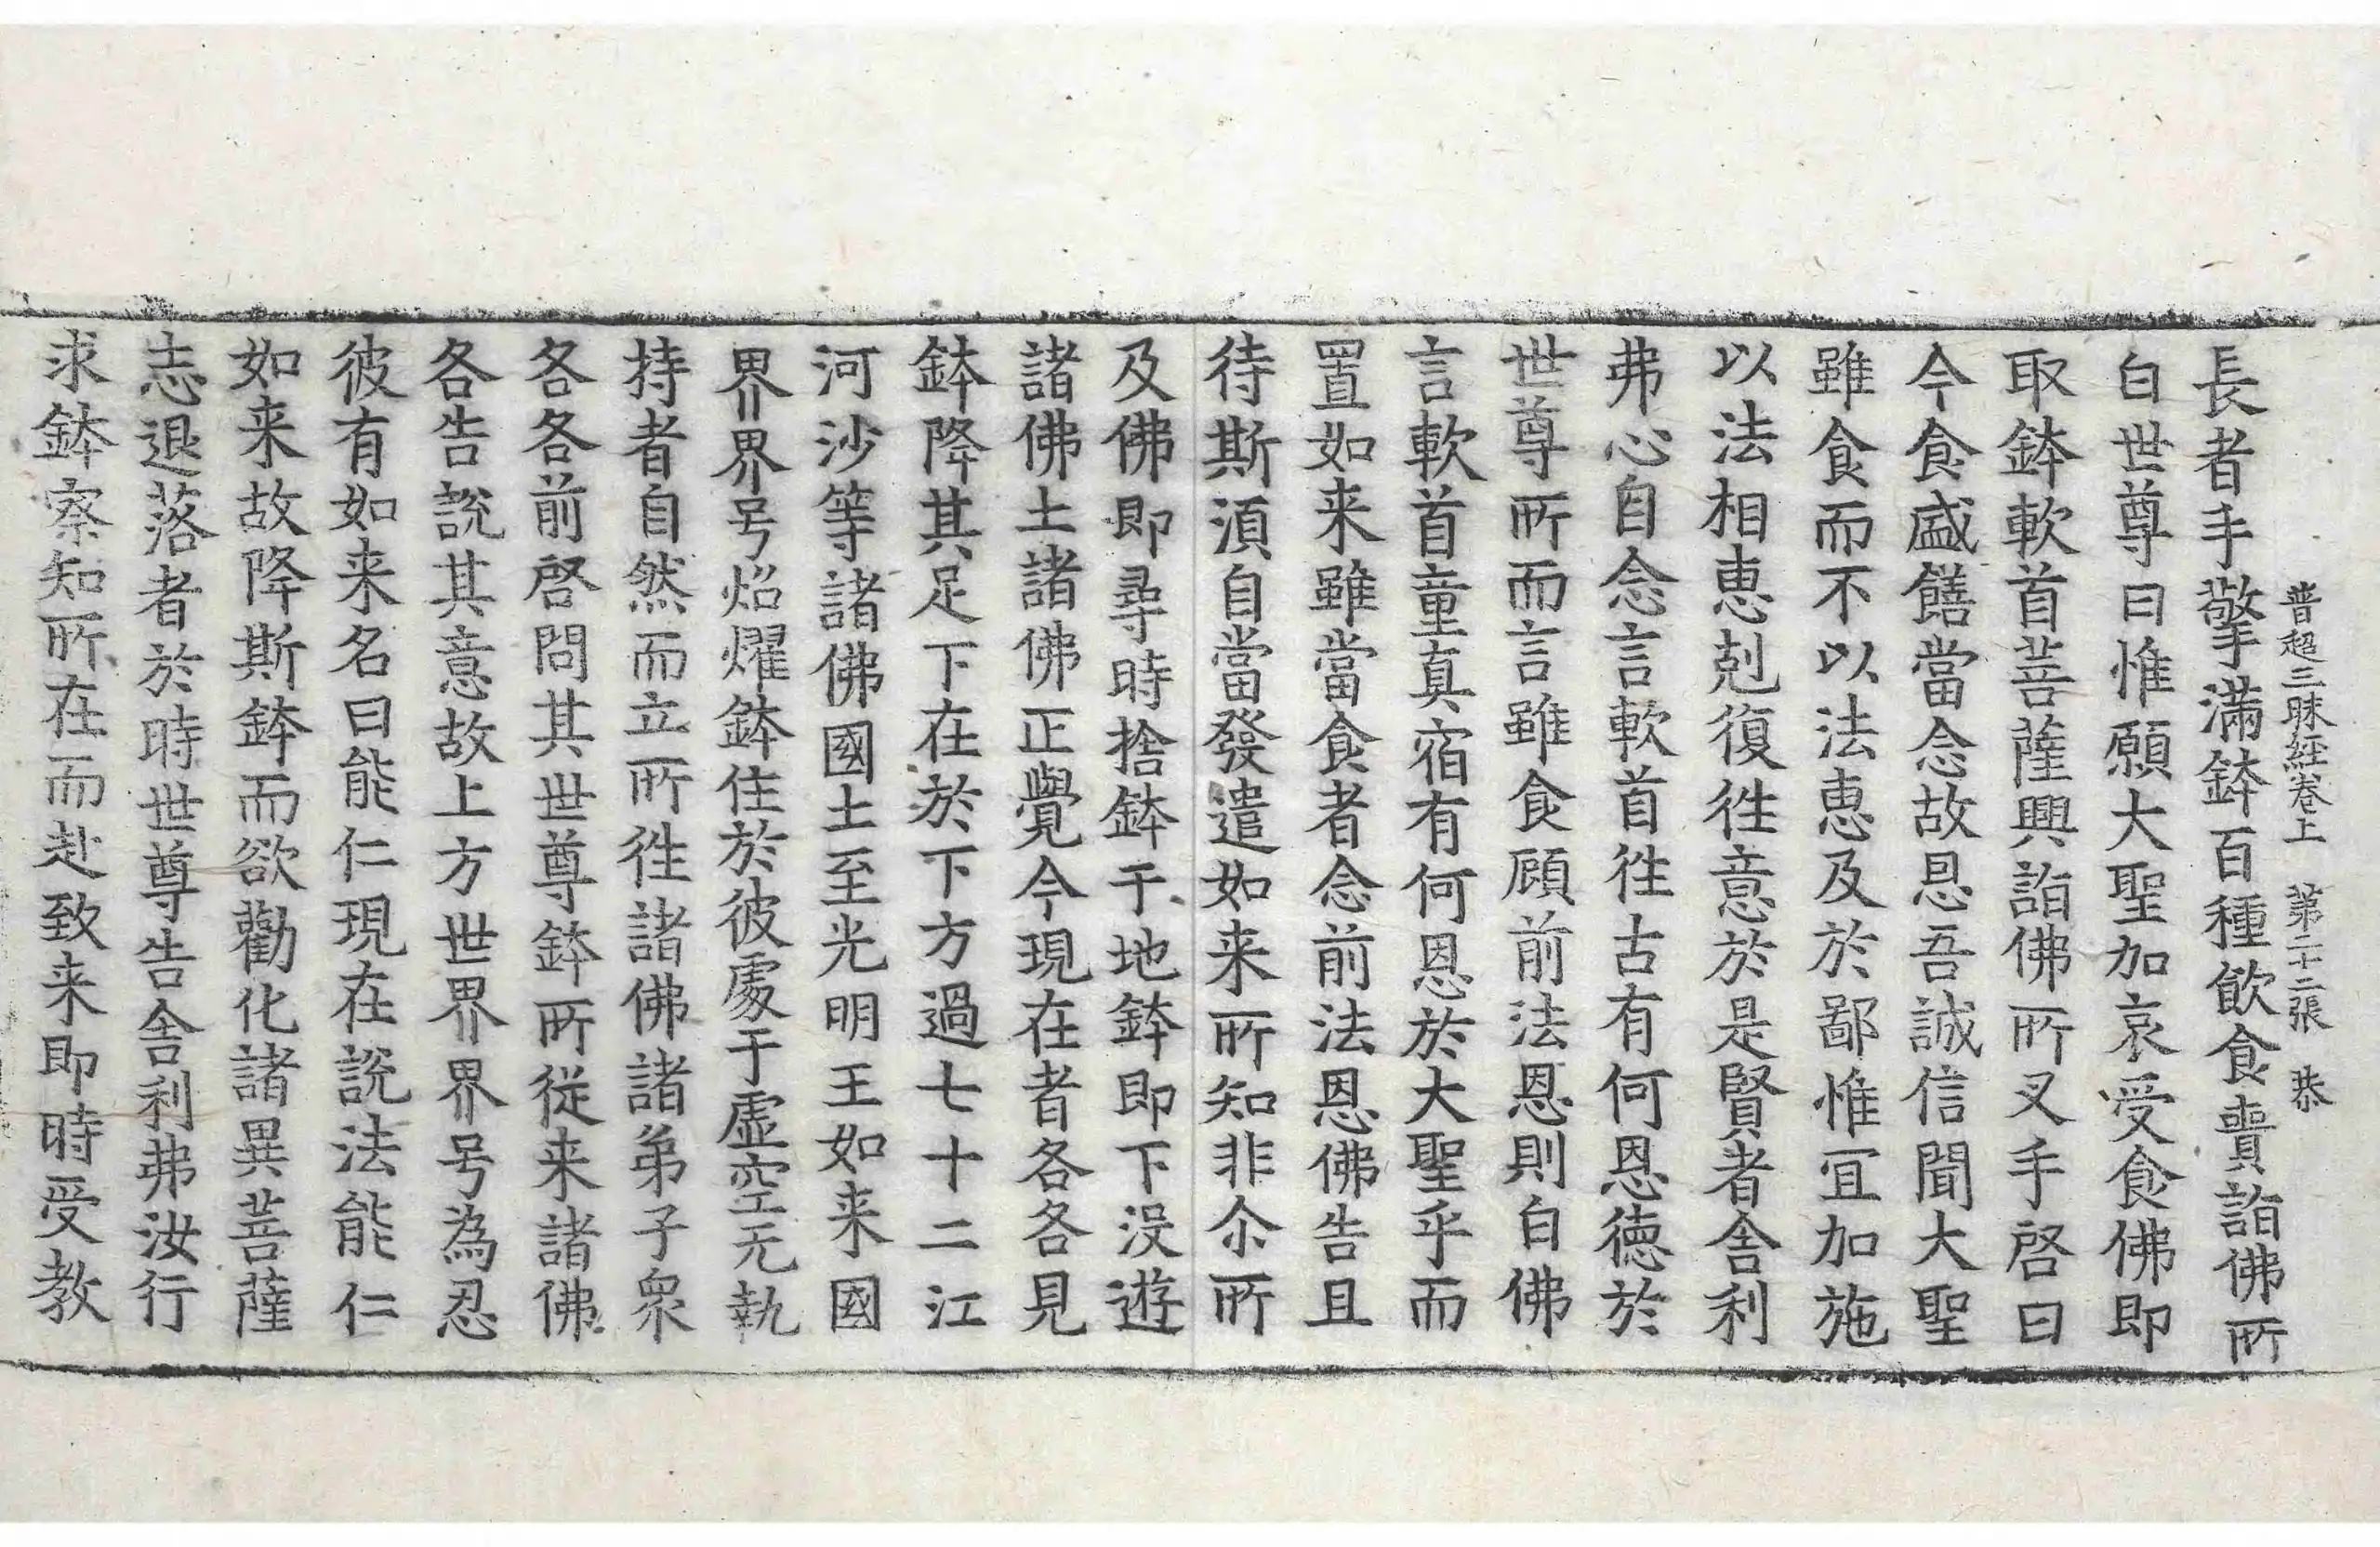 普超三昧經卷上　第二十二張　恭
長者手擎滿鉢百種飲食賷詣佛所
白世尊曰惟願大聖加哀受食佛即
取鉢軟首菩薩興詣佛所叉手啓曰
今食盛饍當念故恩吾誠信聞大聖
雖食而不以法恵及於鄙惟冝加施
以法相恵剋復徃意於是賢者舎利
弗心自念言軟首徃古有何恩徳於
世尊所而言雖食顧前法恩則自佛
言軟首童真宿有何恩於大聖乎而
置如来雖當食者念前法恩佛告且
待斯湏自當發遣如来所知非尒所
及佛即尋時捨鉢于地鉢即下没遊
諸佛土諸佛正覺今現在者各各見
鉢降其足下在於下方過七十二江
河沙等諸佛國土至光明王如来國
界界号焰燿鉢住於彼處于虚空无執
持者自然而立所徃諸佛諸弟子衆
各各前啓問其世尊鉢所從来諸佛
各告説其意故上方世界界号為忍
彼有如来名曰能仁現在説法能仁
如来故降斯鉢而欲勸化諸異菩薩
志退落者於時世尊告舎利弗汝行
求鉢察知所在而赴致来即時受教